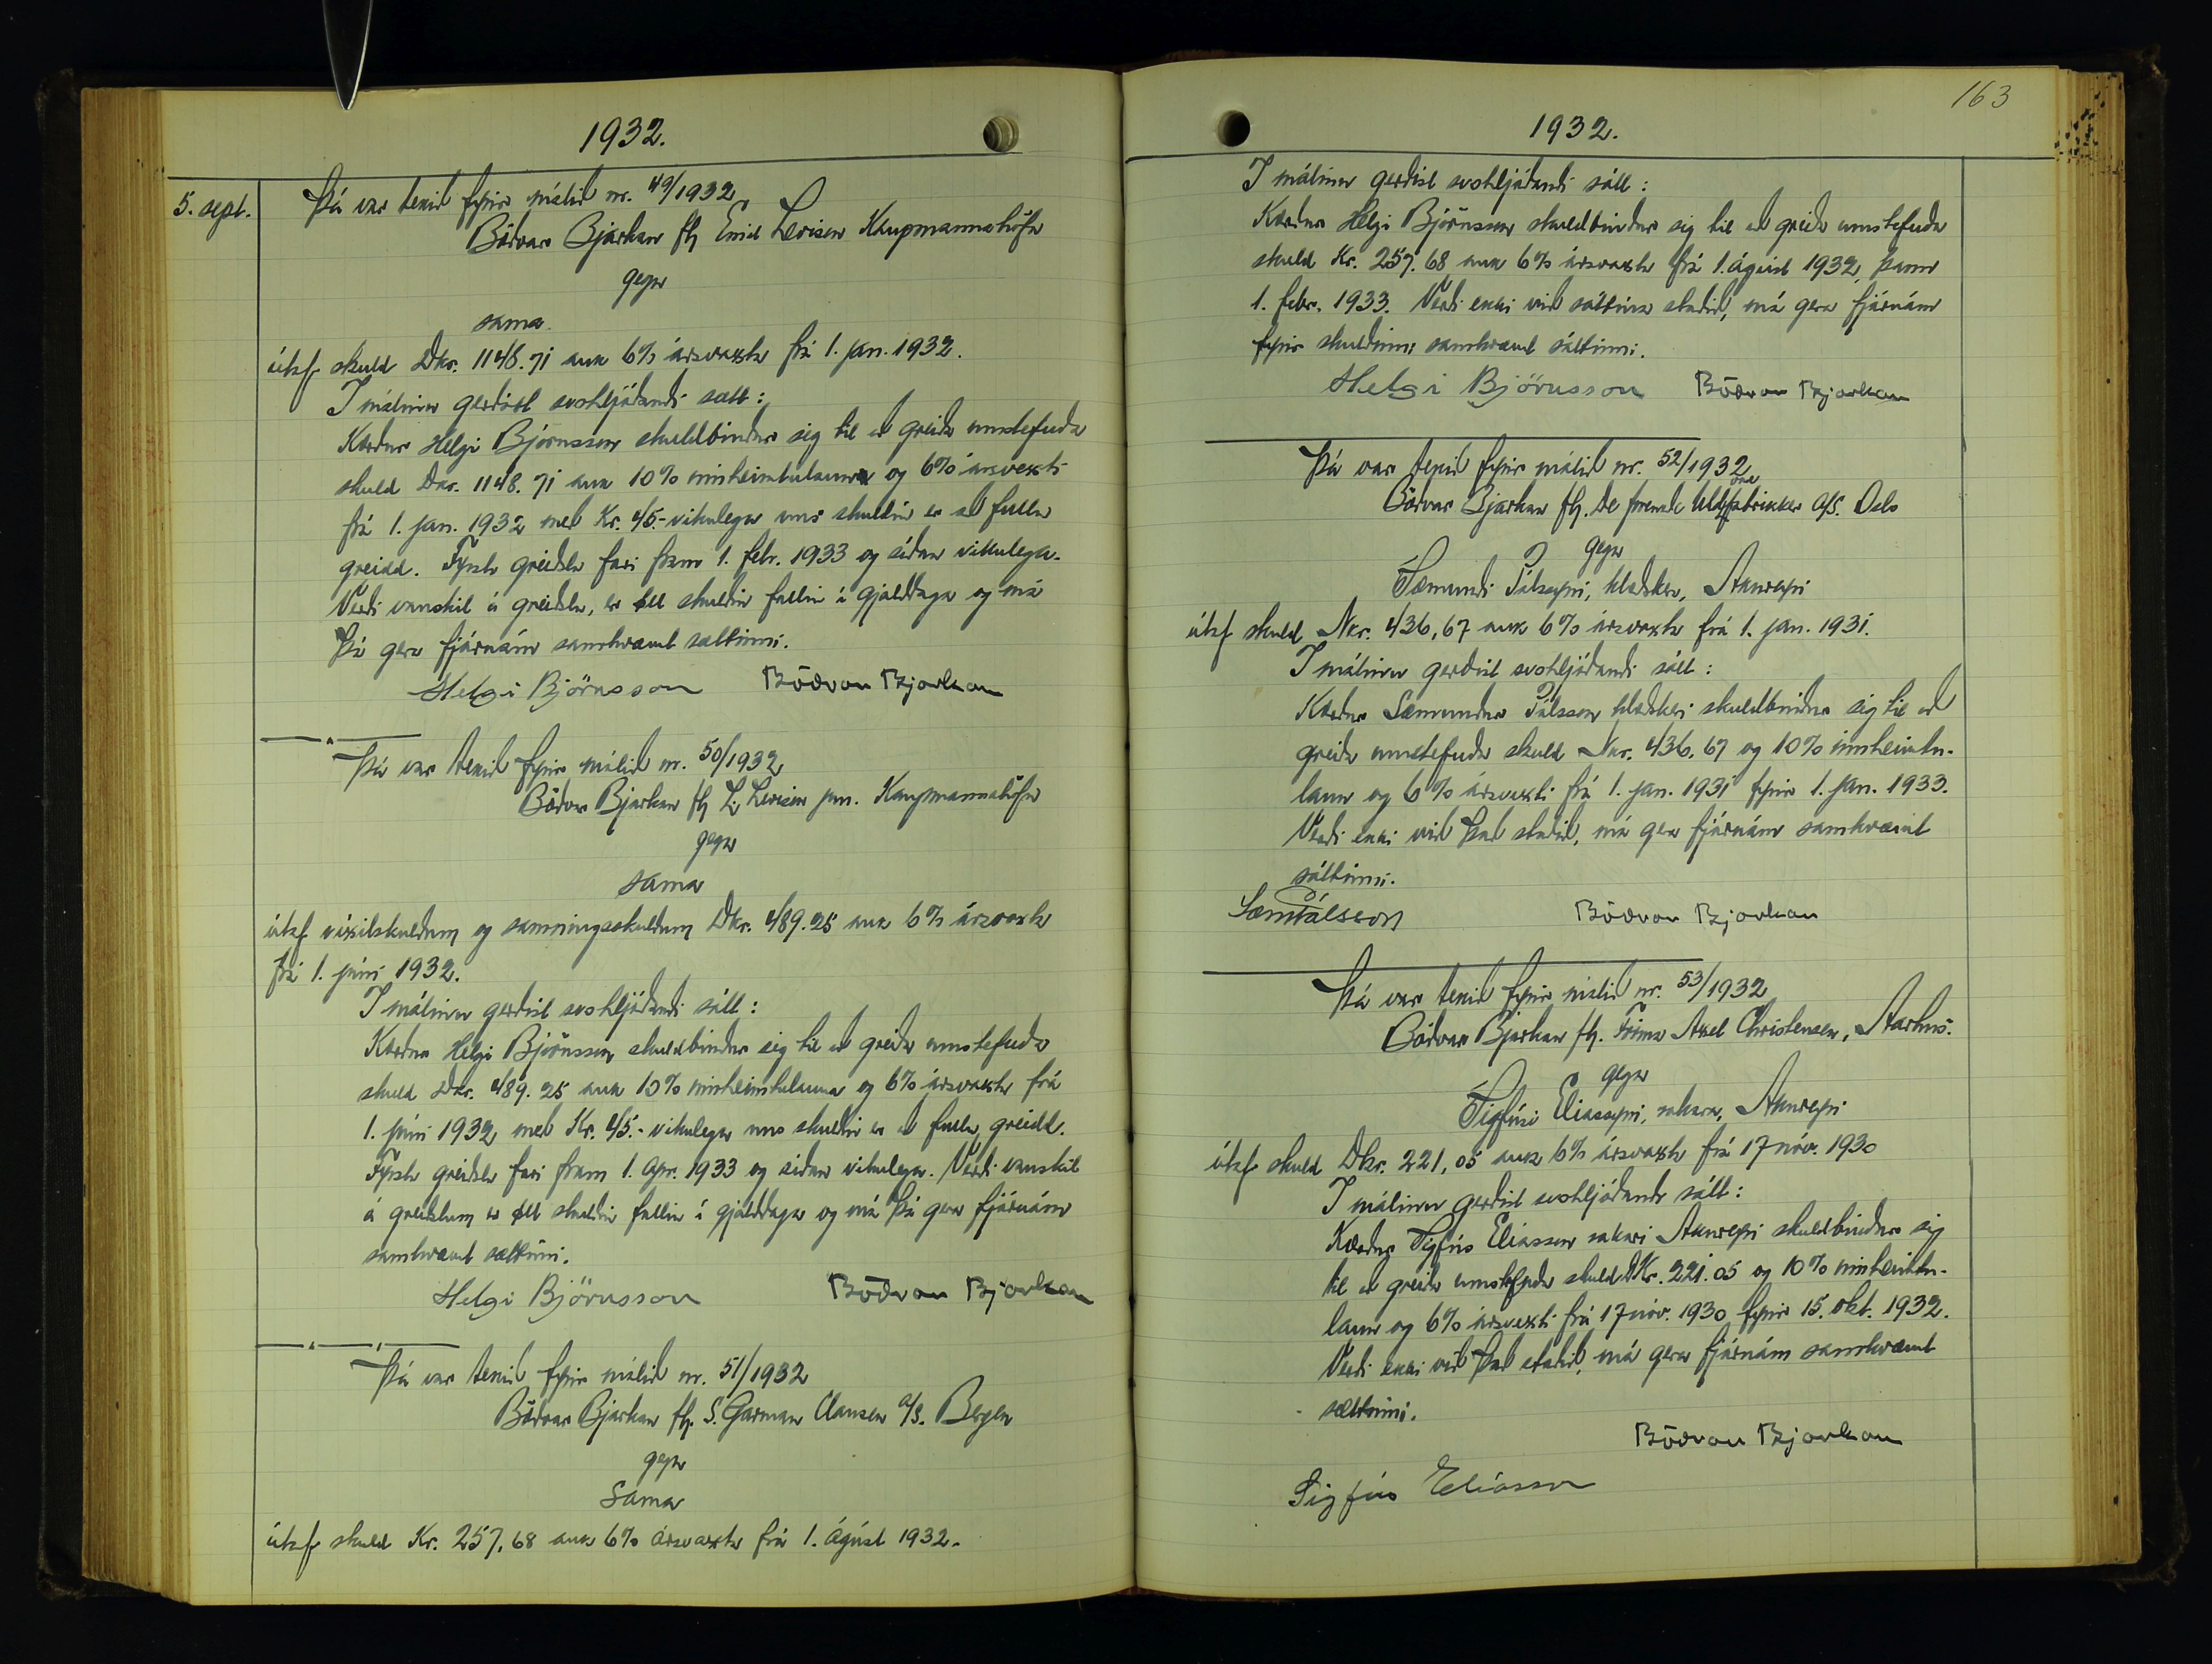 1932.
5. sept.
Þá var tekið fyrir málið nr. 49/1932
Böðvar Bjarkan fh Emil Levisen Kaupmannahöfn
gegn
sama.
útaf skuld Dkr. 1148.71 auk 6% ársvaxta frá 1. jan. 1932.
Í málinu gerðist svohljóðandi sætt:
Kærður Helgi Björnsson skuldbindur sig til að greiða umstefnda
skuld Dkr. 1148.71 auk 10% innheimtulauna og 6% ársvexti
frá 1. jan. 1932 með Kr. 45.- vikulega uns skuldin er að fullu
greidd. Fyrsta greiðsla fari fram 1. febr. 1933 og síðan vikulega.
Verði vanskil á greiðslu, er öll skuldin fallin í gjalddaga og má
þá gera fjárnám samkvæmt sættinni.
Helgi Björnsson Böðvar Bjarkan
Þá var tekið fyrir málið nr. 50/1932
Böðvar Bjarkan fh L. Levisen jun. Kaupmannahöfn
gegn
sama
útaf víxilskuldum og samningsskuldum Dkr. 489.25 auk 6% ársvaxta
frá 1. júni 1932.
Í málinu gerðist svohljóðandi sátt:
Kærður Helgi Björnsson skuldbindur sig til að greiða umstefnda
skuld Dkr. 489.25 auk 10% innheimtulauna og 6% ársvaxta frá
1. júni 1932 með Kr. 45.- vikulega uns skuldin er að fullu greidd.
Fyrsta greiðsla fari fram 1. apr. 1933 og síðan vikulega. Verði vanskil
á greiðslum er öll skuldin fallin í gjalddaga og má þá gera fjárnám
samkvæmt sættinni.
Helgi Björnsson Böðvar Bjarkan
Þá var tekið fyrir málið nr. 51/1932
Böðvar Bjarkan fh. S. Garman Clausen A/S. Bergen
gegn
Sama
útaf skuld Kr. 257,68 auk 6% ársvaxta frá 1. ágúst 1932.
163
1932.
Í málinu gerðist svohljóðandi sátt:
Kærður Helgi Björnsson skuldbindur sig til að greiða umstefnda
skuld Kr. 257.68 auk 6% ársvaxta frá 1. ágúst 1932, þann
1. febr. 1933. Verði ekki við sáttina staðið, má gera fjárnám
fyrir skuldinni samkvæmt sáttinni.
Helgi Björnsson Böðvar Bjarkan
Þá var tekið fyrir málið nr. 52/1932
Böðvar Bjarkan fh. De forenede Uldvarefabrikker A/S. Oslo
gegn
Sæmundi Pálssyni, klæðskera, Akureyri
útaf skuld Nkr. 436,67 auk 6% ársvaxta frá 1. jan. 1931.
Í málinu gerðist svohljóðandi sátt:
Kærður Sæmundur Pálsson klæðskeri skuldbindur sig til að
greiða umstefnda skuld Nkr. 436.67 og 10% innheimtu-
laun og 6% ársvexti frá 1. jan. 1931 fyrir 1. jan. 1933.
Verði ekki við það staðið, má gera fjárnám samkvæmt
sáttinni.
Sæm Pálsson Böðvar Bjarkan
Þá var tekið fyrir málið nr. 53/1932
Böðvar Bjarkan fh. Firma Axel Christensen, Aarhus.
gegn
Sigfúsi Elíassyni, rakara, Akureyri
útaf skuld Dkr. 221,05 auk 6% ársvaxta frá 17 nóv. 1930
Í málinu gerðist svohljóðandi sátt:
Kærður Sigfús Elíasson rakari Akureyri skuldbindur sig
til að greiða umstefnda skuld Dkr. 221.05 og 10% innheimtu-
laun og 6% ársvexti frá 17 nóv. 1930 fyrir 15. okt. 1932.
Verði ekki við það staðið, má gera fjárnám samkvæmt
sættinni.
Böðvar Bjarkan
Sigfús Elíasson